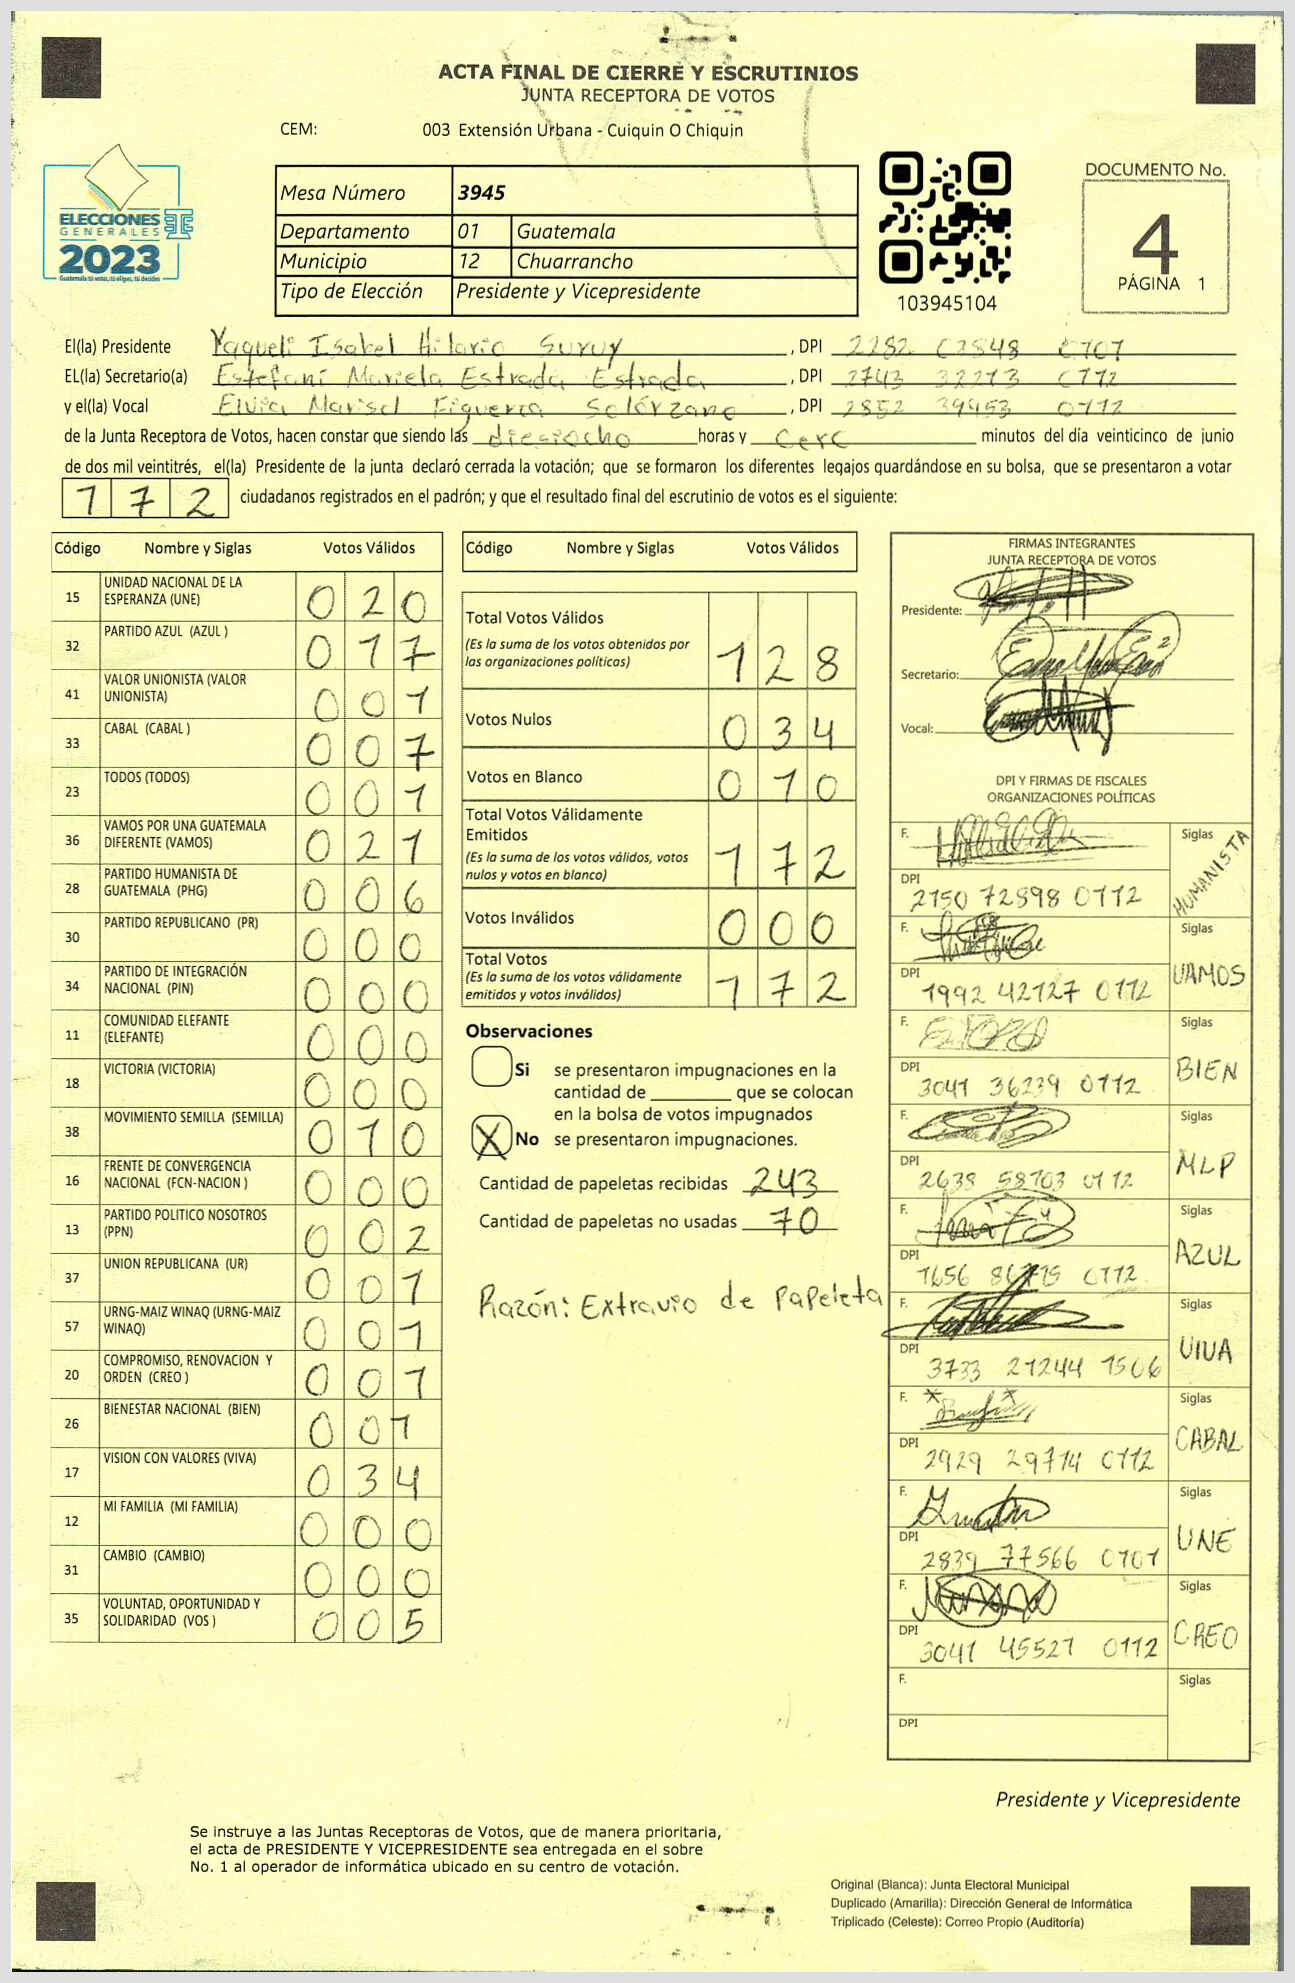 ACTA FINAL DE CIERRE Y ESCRUTINIOS
JUNTA RECEPTORA DE VOTOS
CEM: 003 Extensión Urbana - Cuiquin O Chiquin
ELECCIONES
GENERALES
2023
Guatemala tú votas, tú eliges, tú decides
Mesa Número 3945
Departamento 01 Guatemala
Municipio 12 Chuarrancho
Tipo de Elección Presidente y Vicepresidente
103945104
DOCUMENTO No.
4
PÁGINA 1
El(la) Presidente Yaqueli Isabel Hilario Suruy, DPI 2282 02848 0707
EL(la) Secretario(a) Estefani Mariela Estrada Estrada, DPI 2743 32273 0112
y el(la) Vocal Elvia Marisol Figueroa Solórzano, DPI 2852 39453 0112
de la Junta Receptora de Votos, hacen constar que siendo las diesiocho horas y cero minutos del día veinticinco de junio
de dos mil veintitrés, el(la) Presidente de la junta declaró cerrada la votación; que se formaron los diferentes legajos quardándose en su bolsa, que se presentaron a votar
172 ciudadanos registrados en el padrón; y que el resultado final del escrutinio de votos es el siguiente:
Código Nombre y Siglas Votos Válidos
15 UNIDAD NACIONAL DE LA ESPERANZA (UNE) 020
32 PARTIDO AZUL (AZUL ) 017
41 VALOR UNIONISTA (VALOR UNIONISTA) 001
33 CABAL (CABAL ) 007
23 TODOS (TODOS) 001
36 VAMOS POR UNA GUATEMALA DIFERENTE (VAMOS) 021
28 PARTIDO HUMANISTA DE GUATEMALA (PHG) 006
30 PARTIDO REPUBLICANO (PR) 000
34 PARTIDO DE INTEGRACIÓN NACIONAL (PIN) 000
11 COMUNIDAD ELEFANTE (ELEFANTE) 000
18 VICTORIA (VICTORIA) 000
38 MOVIMIENTO SEMILLA (SEMILLA) 010
16 FRENTE DE CONVERGENCIA NACIONAL (FCN-NACION ) 000
13 PARTIDO POLITICO NOSOTROS (PPN) 002
37 UNION REPUBLICANA (UR) 001
57 URNG-MAIZ WINAQ (URNG-MAIZ WINAQ) 001
20 COMPROMISO, RENOVACION Y ORDEN (CREO ) 001
26 BIENESTAR NACIONAL (BIEN) 001
17 VISION CON VALORES (VIVA) 034
12 MI FAMILIA (MI FAMILIA) 000
31 CAMBIO (CAMBIO) 000
35 VOLUNTAD, OPORTUNIDAD Y SOLIDARIDAD (VOS ) 005
Código Nombre y Siglas Votos Válidos
Total Votos Válidos 128
(Es la suma de los votos obtenidos por
las organizaciones políticas)
Votos Nulos 034
Votos en Blanco 010
Total Votos Válidamente
Emitidos 172
(Es la suma de los votos válidos, votos
nulos y votos en blanco)
Votos Inválidos 000
Total Votos 172
(Es la suma de los votos válidamente
emitidos y votos inválidos)
Observaciones
Si se presentaron impugnaciones en la
cantidad de ________ que se colocan
en la bolsa de votos impugnados
X No se presentaron impugnaciones.
Cantidad de papeletas recibidas 243
Cantidad de papeletas no usadas 70
Razón: Extravio de papeleta
FIRMAS INTEGRANTES
JUNTA RECEPTORA DE VOTOS
Presidente:
Secretario:
Vocal:
DPI Y FIRMAS DE FISCALES
ORGANIZACIONES POLÍTICAS
F. Siglas HUMANISTA
DPI 2150 72898 0112
F. Siglas VAMOS
DPI 1992 42127 0112
F. Siglas BIEN
DPI 3041 36239 0112
F. Siglas MLP
DPI 2638 58703 0112
F. Siglas AZUL
DPI 1656 0112
F. Siglas VIVA
DPI 3733 21244 1506
F. Siglas CABAL
DPI 2929 29714 0112
F. Siglas UNE
DPI 2839 77566 0101
F. Siglas CREO
DPI 3041 45527 0112
F. Siglas
DPI
Presidente y Vicepresidente
Se instruye a las Juntas Receptoras de Votos, que de manera prioritaria,
el acta de PRESIDENTE Y VICEPRESIDENTE sea entregada en el sobre
No. 1 al operador de informática ubicado en su centro de votación.
Original (Blanca): Junta Electoral Municipal
Duplicado (Amarilla): Dirección General de Informática
Triplicado (Celeste): Correo Propio (Auditoría)